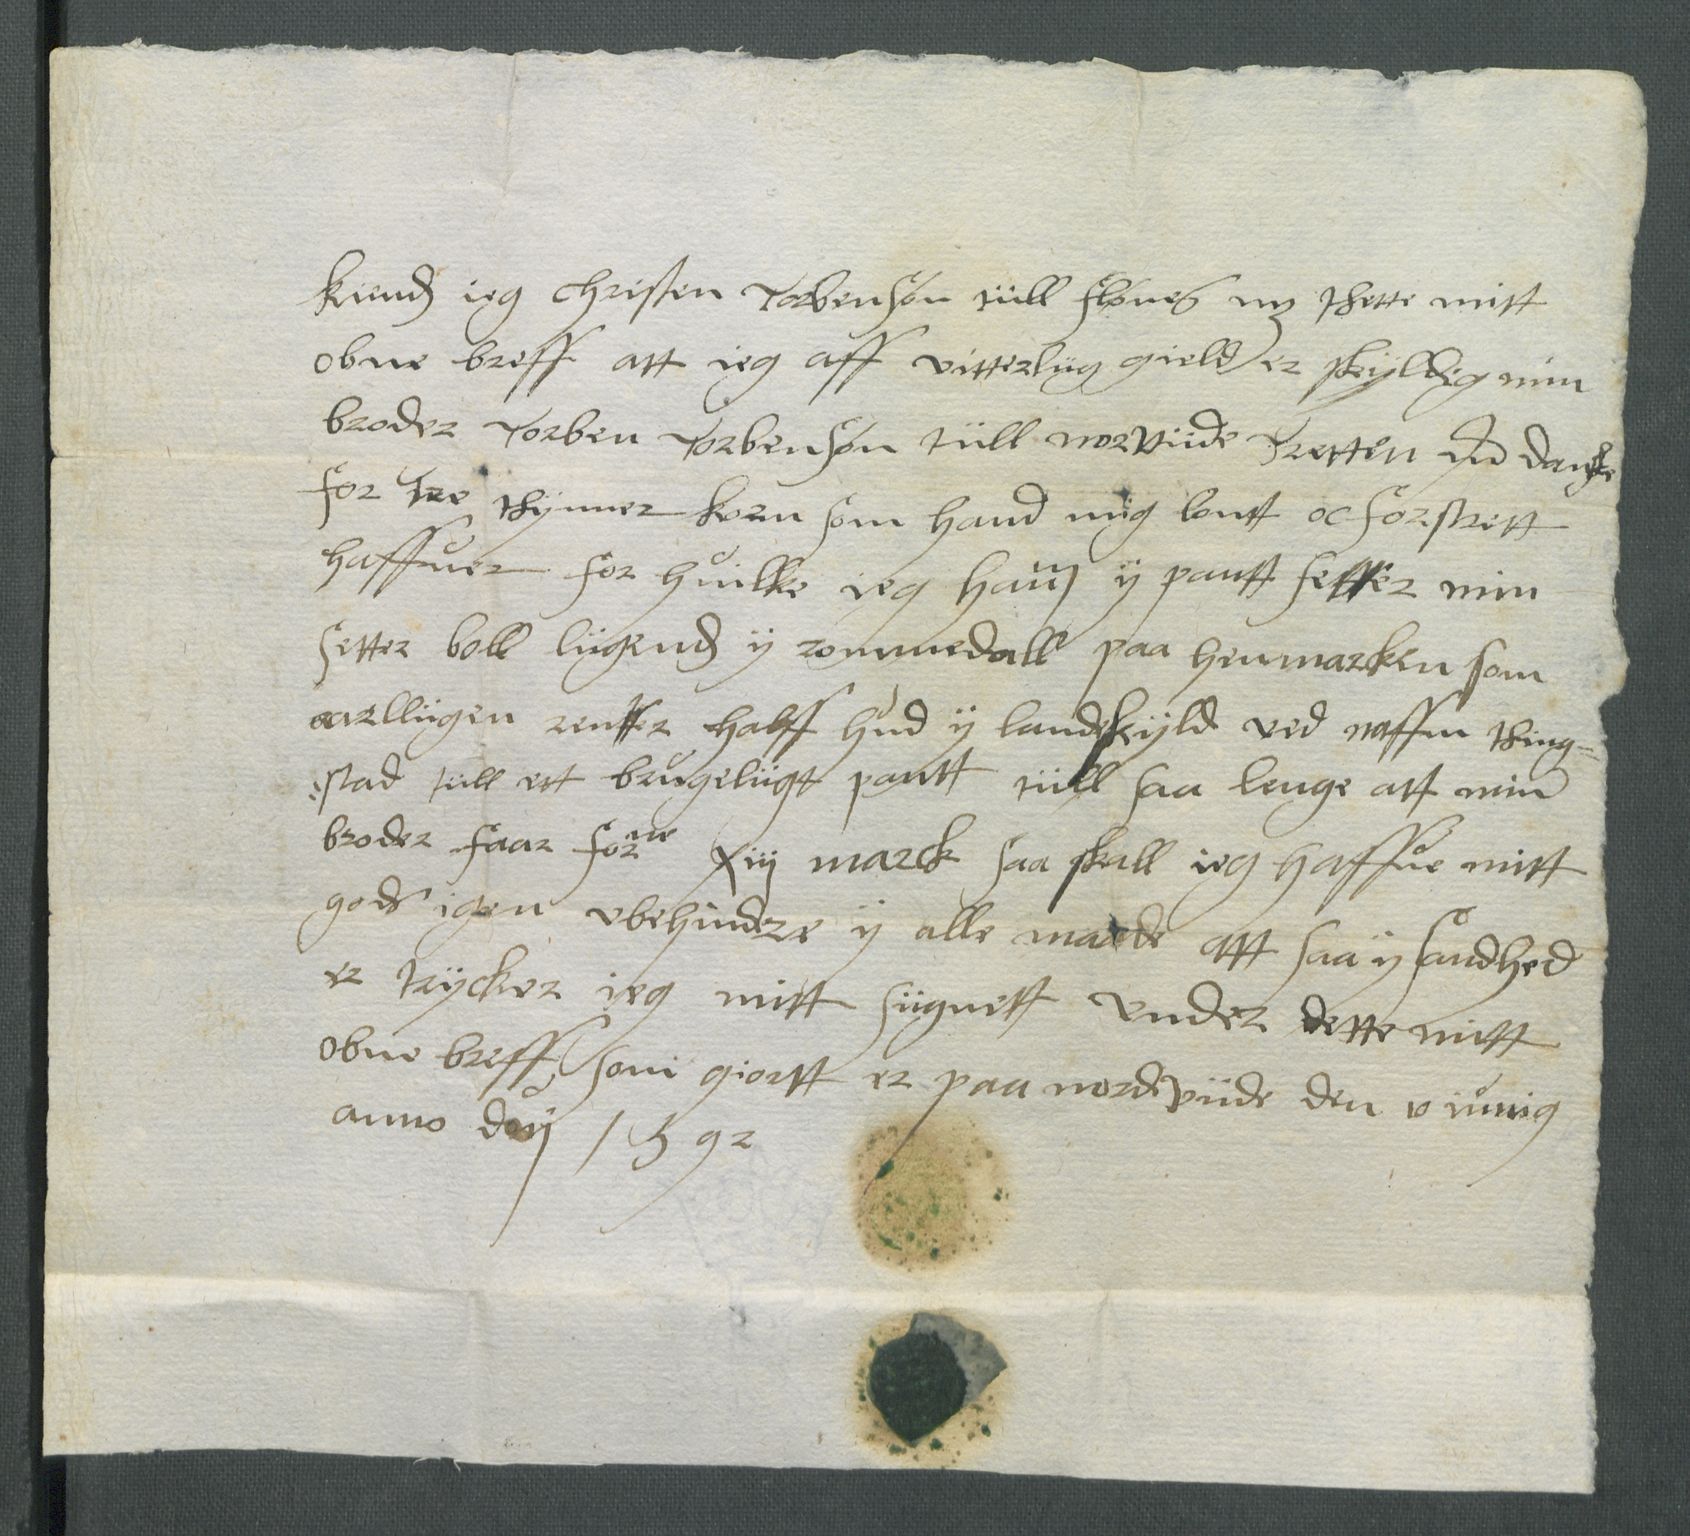 Kiend ieg Christen Torbensøn tiill Flønes mz thette mitt
obne breff att ieg aff vitterliig gield er skÿlldig min
broder Torben Torbensøn tiill norviide Tretten daa danske
for Tre thÿnner korn som hand miig lontt oc forstrett
haffuer for huilke ieg hanm ÿ pantt setter min
setter boll liigend ÿ rommedall paa henmarken som
aarlliigen rentter halff hud ÿ landskÿld ved naffn thing=
stad tiill ett brugeliigt pantt tiill saa lenge att min
broder faar forne xiij marck saa skall ieg haffue mitt
gods igen vbehindere ÿ alle maade att saa ÿ sandhed
er trÿcker ieg mitt siignett vnder dette mitt
obne breff som giortt er paa nordeviide den v iunig
anno dom 1592